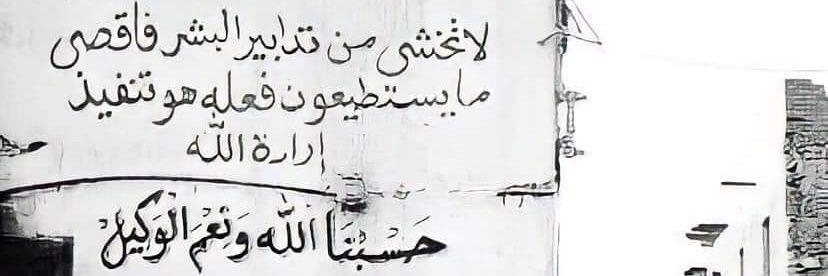 لا تخشى من تدابير البشر فاقصى
ما يستطيعون فعله هو تنفيذ
إرارة الله
حَسْبُنَا اللّٰه وَنِعْمَ الْوَكِيلْ